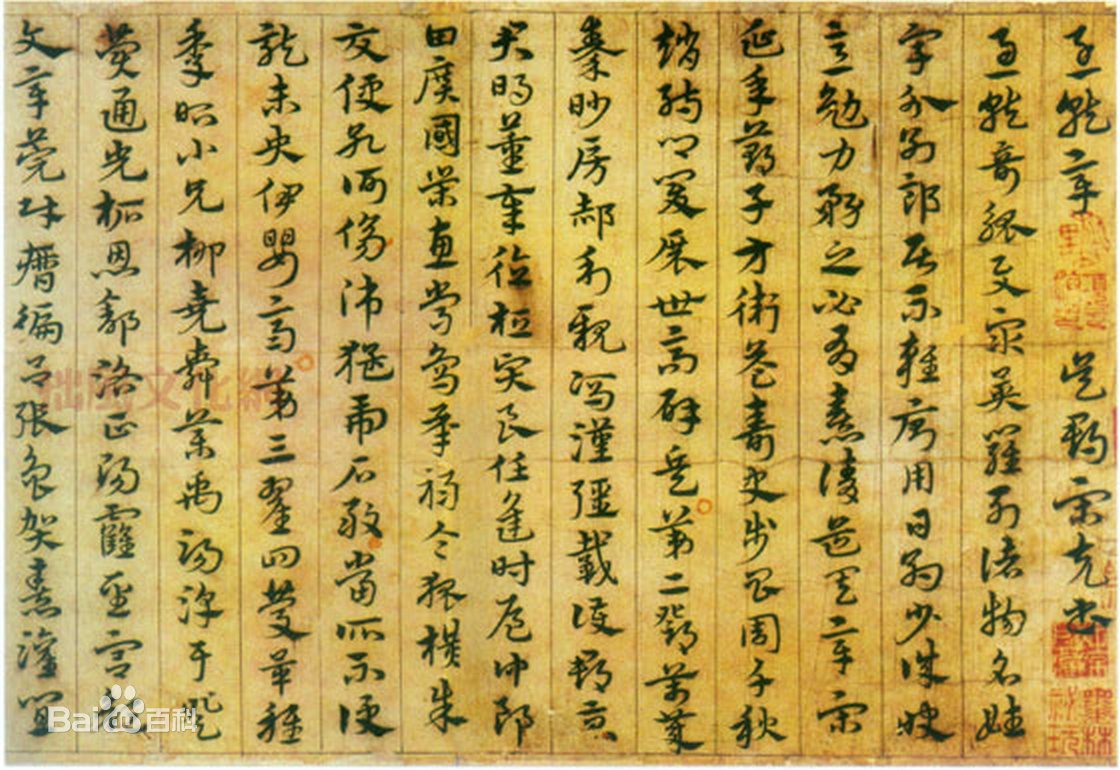 急就章 吳郡宋克書
急就奇觚與眾異羅列諸物名姓
字分別部居不雜廁用日約少誠快
意勉力務之必有憙請道其章宋
延年鄭子方衛益壽史步昌周千秋
趙孺卿爰展世高辟兵第二鄧萬歲
秦眇房郝利親馮漢彊戴護郡景
君明董奉德桓賢良任逢時侯仲郎
田廣國榮惠常烏承祿令狐橫朱
交便孔何傷師猛虎石敢當所不侵
龍未央伊嬰齊第三翟回慶畢稚
季昭小兄柳堯舜藥禹湯淳于登
費通光柘恩舒路正陽霍聖宮顏
文章莞財歷偏呂張魯賀憙灌宜
Baidu百科